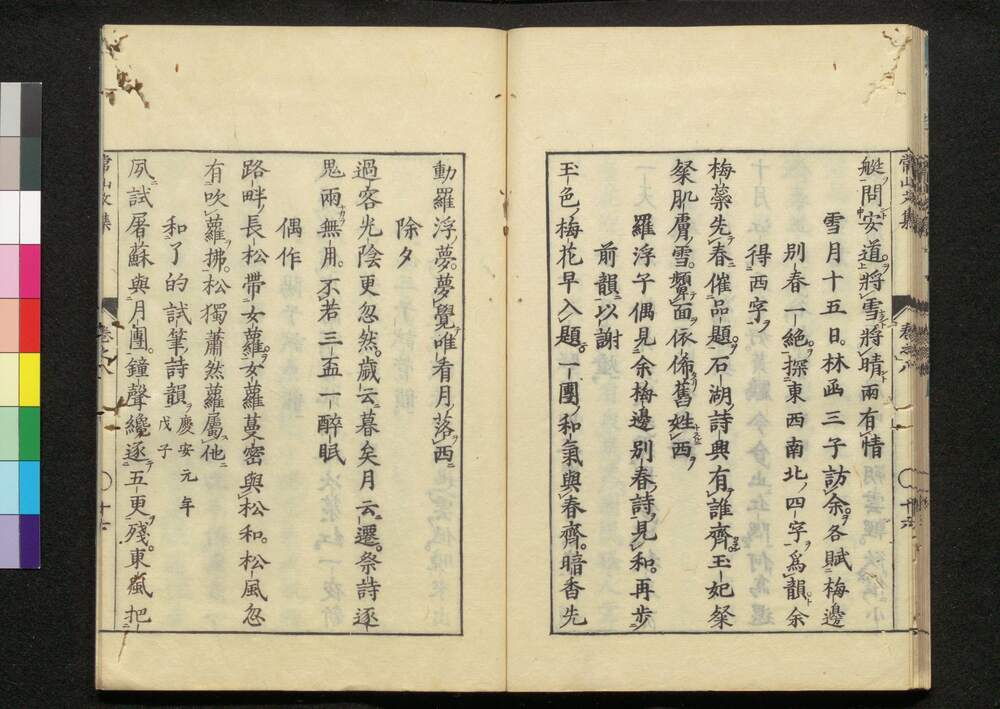 艇問安道將雪將晴兩有情
雪月十五日林函三子訪余各賦梅邊
別春一絶探東西南北四字爲韻余
得西字
梅蘂先春催品題石湖詩興有誰齊玉妃粲
粲肌膚雪顰面依俙舊姓西
羅浮子偶見余梅邊別春詩見和再歩
前韻以謝
玉色梅花早入題一團和氣與春齊暗香先
動羅浮夢夢覺唯看月落西
除夕
過客光陰更忽然歲云暮矣月云遷祭詩逐
鬼兩無用不若三盃一醉眠
偶作
路畔長松帶女蘿女蘿蔓密與松和松風忽
有吹蘿拂松獨蕭然蘿屬他
和了的試筆詩韻 慶安元年
戊子
夙試屠蘇與月團鐘聲纔逐五更殘東嵐把
常山文集
卷之八
十六